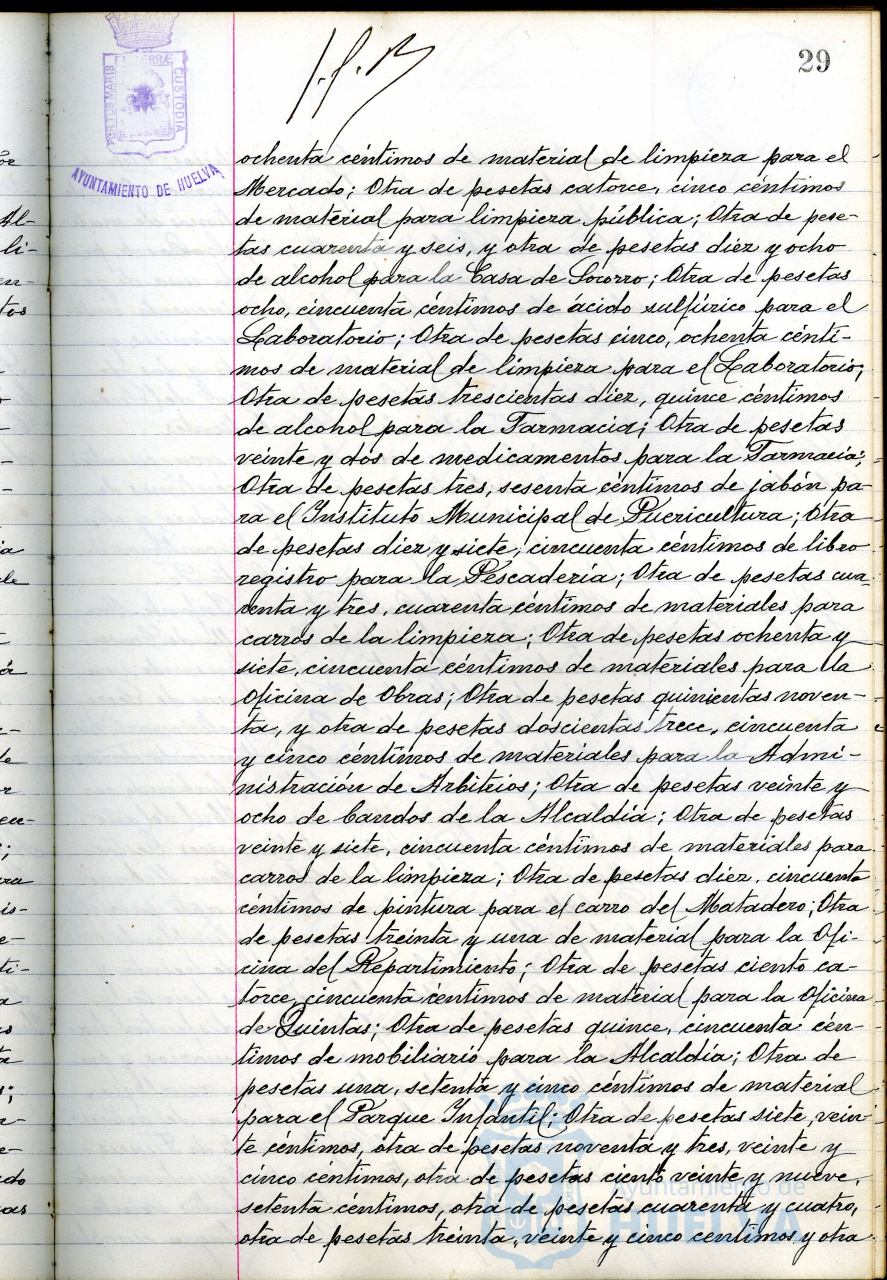 29
PORTUS MARIS ET TERRAE CUSTODIA
AYUNTAMIENTO DE HUELVA
ochenta céntimos de material de limpieza para el
Mercado; Otra de pesetas catorce, cinco céntimos
de material para limpieza pública; Otra de pese-
tas cuarenta y seis, y otra de pesetas diez y ocho
de alcohol para la Casa de Socorro; Otra de pesetas
ocho, cincuenta céntimos de ácido sulfúrico para el
Laboratorio; Otra de pesetas cinco, ochenta cénti-
mos de material de limpieza para el Laboratorio;
Otra de pesetas trescientas diez, quince céntimos
de alcohol para la Farmacia; Otra de pesetas
veinte y dos de medicamentos para la Farmacia;
Otra de pesetas tres, sesenta céntimos de jabón pa-
ra el Instituto Municipal de Puericultura; Otra
de pesetas diez y siete, cincuenta céntimos de libro
registro para la Pescadería; Otra de pesetas cua-
renta y tres, cuarenta céntimos de materiales para
carros de la limpieza; Otra de pesetas ochenta y
siete, cincuenta céntimos de materiales para la
Oficina de Obras; Otra de pesetas quinientas noven-
ta, y otra de pesetas doscientas trece, cincuenta
y cinco céntimos de materiales para la Admi-
nistración de Arbitrios; Otra de pesetas veinte y
ocho de bandos de la Alcaldía; Otra de pesetas
veinte y siete, cincuenta céntimos de materiales para
carros de la limpieza; Otra de pesetas diez, cincuenta
céntimos de pintura para el carro del Matadero; Otra
de pesetas treinta y una de material para la Ofi-
cina del Repartimiento; Otra de pesetas ciento ca-
torce, cincuenta céntimos de material para la Oficina
de Quintas; Otra de pesetas quince, cincuenta cén-
timos de mobiliario para la Alcaldía; Otra de
pesetas una, setenta y cinco céntimos de material
para el Parque Infantil; Otra de pesetas siete, vein-
te céntimos, otra de pesetas noventa y tres, veinte y
cinco céntimos, otra de pesetas ciento veinte y nueve,
setenta céntimos, otra de pesetas cuarenta y cuatro,
otra de pesetas treinta, veinte y cinco centimos y otra
Ayuntamiento de
HUELVA